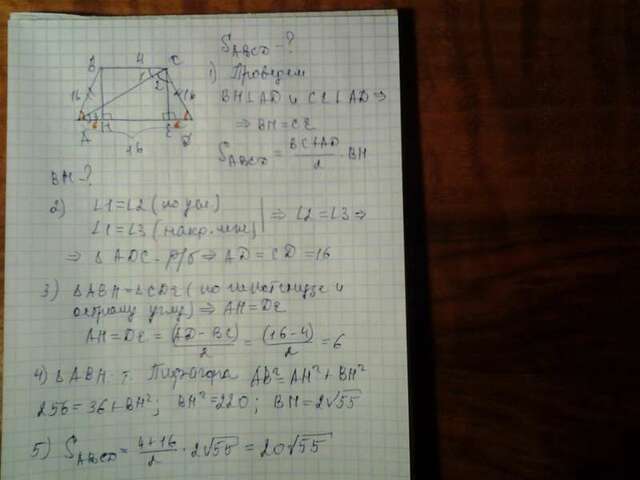 B 4 C
1
2
16 16
3
A H E D
16
S_ABCD - ?
1) Проведем
BH ⊥ AD и CE ⊥ AD ⇒
⇒ BH = CE
S_ABCD = (BC + AD)/2 · BH
BH - ?
2) ∠1 = ∠2 (по усл)
∠1 = ∠3 (накр. леж) | ⇒ ∠2 = ∠3 ⇒
⇒ Δ ADC - р/б ⇒ AD = CD = 16
3) Δ ABH = Δ CDE (по гипотенузе и
острому углу) ⇒ AH = DE
AH = DE = (AD - BC)/2 = (16 - 4)/2 = 6
4) Δ ABH т. Пифагора AB² = AH² + BH²
256 = 36 + BH²; BH² = 220; BH = 2√55
5) S_ABCD = (4 + 16)/2 · 2√55 = 20√55